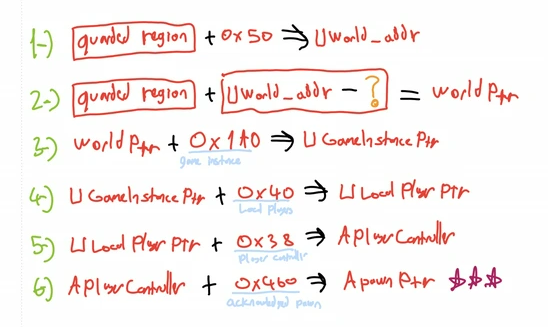 1-) guarded region + 0x50 ⇒ UWorld_addr
2-) guarded region + UWorld_addr - ? = world Ptr
3-) world Ptr + 0x1A0 ⇒ UGameInstance Ptr
game instance
4-) UGameInstance Ptr + 0x40 ⇒ ULocal Player Ptr
Local Players
5-) ULocal Player Ptr + 0x38 ⇒ APlayerController
Player controller
6-) APlayerController + 0x460 ⇒ Apawn Ptr
acknowledged pawn